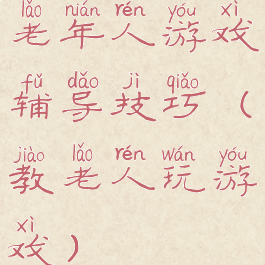 lǎo nián rén yóu xì
老年人游戏
fǔ dǎo jì qiǎo
辅导技巧（
jiào lǎo rén wán yóu
教老人玩游
xì
戏）